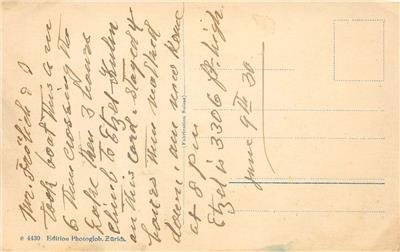 Mr. & I
took boat this a.m
6 thus crossing the
lake then 3 hours
climb to Etzel-Kulm
on this card. Stayed 4
hours then walked
down, am now home
at 8 pm
Etzel is 3306 ft. high.
June 9th 30
(Fabrication Suisse)
e 4430 Edition Photoglob, Zürich.